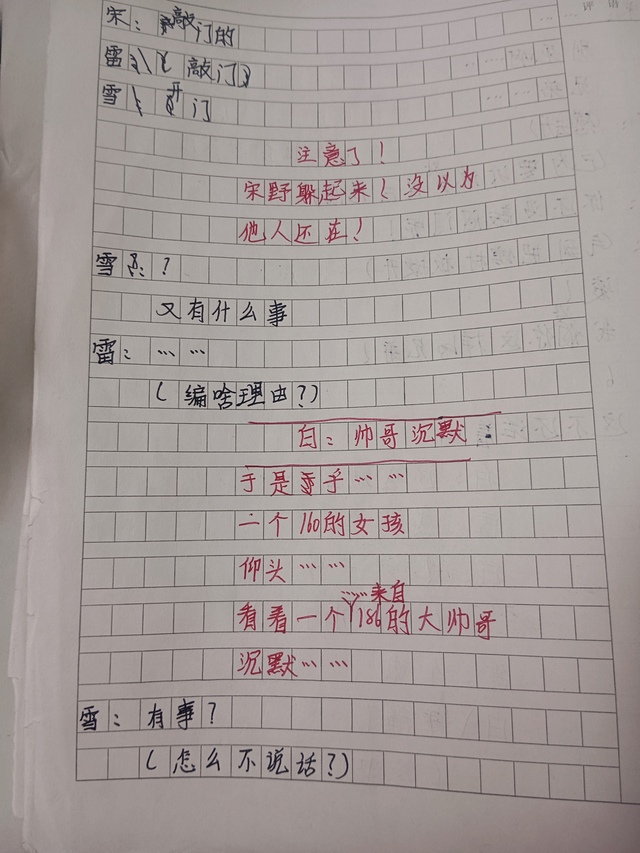 宋：敲门的
雷\（敲门）
雪\ 开门
注意了！
宋野躲起来！没以为
他人还在！
雪：？
又有什么事
雷：……
（编啥理由？）
白：帅哥沉默
于是乎……
一个160的女孩
仰头……
……来自
看着一个186的大帅哥
沉默……
雪：有事？
（怎么不说话？）